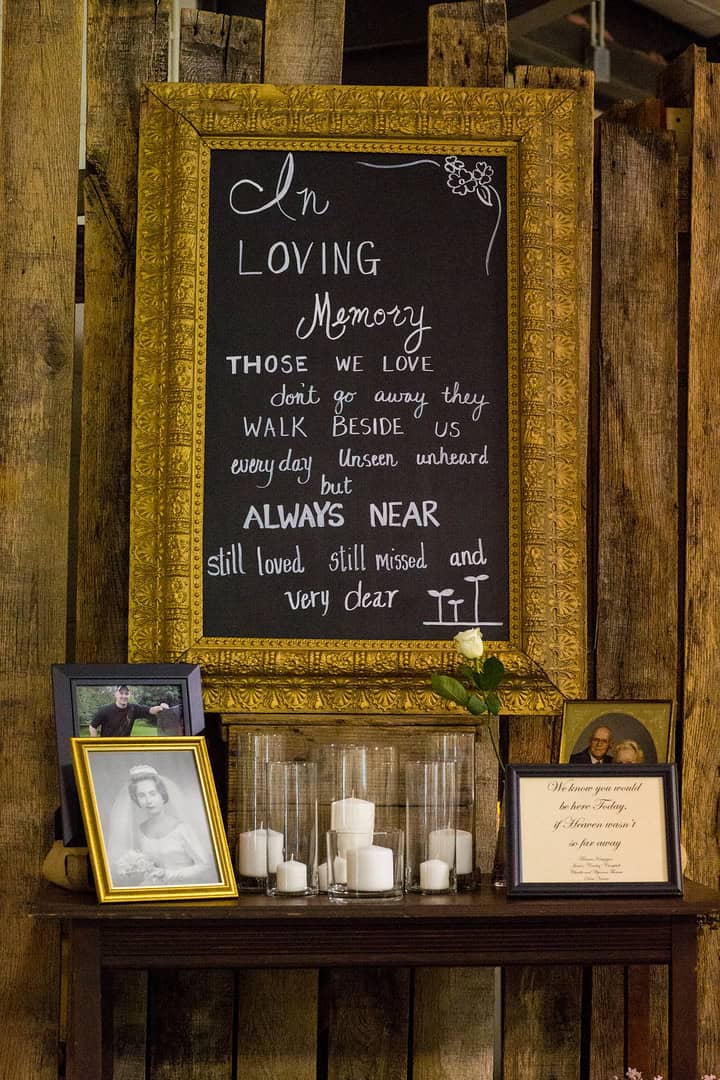 In
LOVING
Memory
THOSE WE LOVE
don't go away they
WALK BESIDE US
everyday Unseen unheard
but
ALWAYS NEAR
still loved still missed and
very dear
We know you would
be here Today,
if Heaven wasn't
so far away